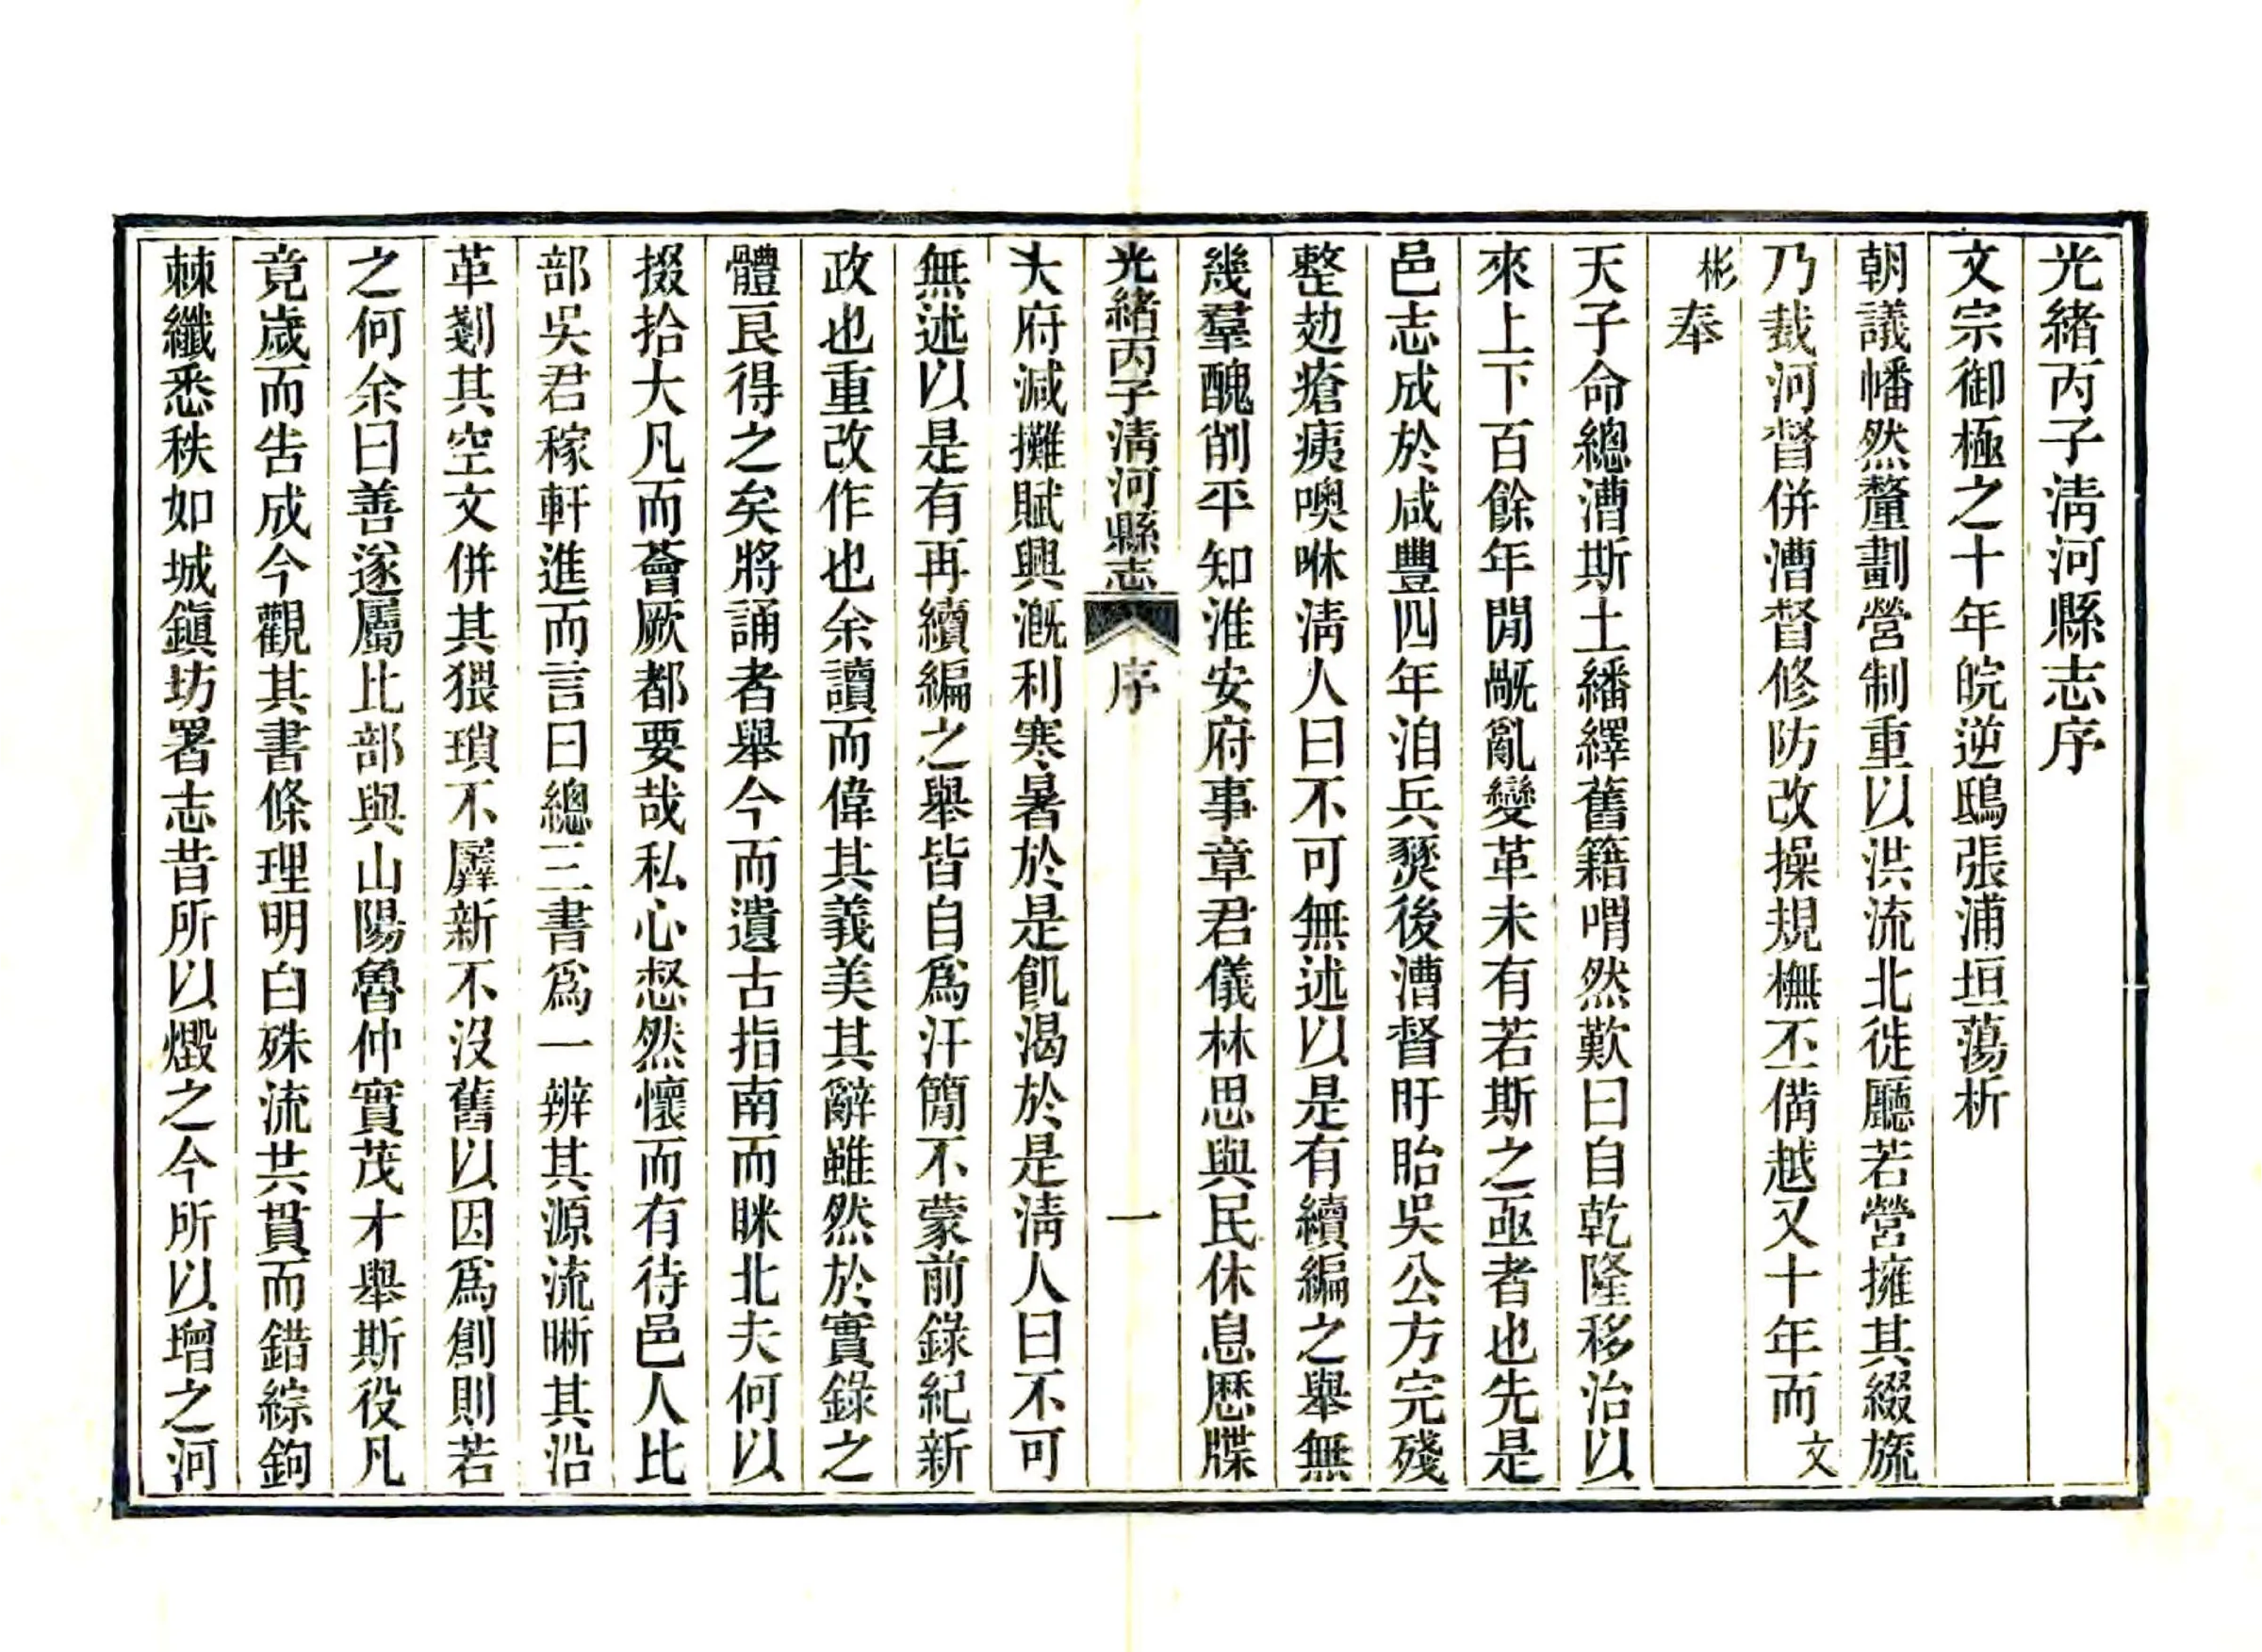 光緒丙子淸河縣志序
文宗御極之十年皖逆鴟張浦垣蕩析
朝議幡然釐劃營制重以洪流北徙廳若營擁其綴旒
乃裁河督併漕督修防改操規橅丕僃越又十年而文
彬奉
天子命總漕斯土繙繹舊籍喟然歎曰自乾隆移治以
來上下百餘年閒戡亂變革未有若斯之亟者也先是
邑志成於咸豐四年洎兵燹後漕督盱眙吳公方完殘
整勊瘡痍噢咻淸人曰不可無述以是有續編之舉無
幾羣醜削平知淮安府事章君儀林思與民休息厯牒
大府減攤賦興漑利寒暑於是飢渴於是淸人曰不可
無述以是有再續編之舉皆自爲汗簡不蒙前錄紀新
政也重改作也余讀而偉其義美其辭雖然於實錄之
體良得之矣將誦者舉今而遺古指南而眯北夫何以
掇拾大凡而薈厥都要哉私心惄然懷而有待邑人比
部吳君稼軒進而言曰總三書爲一辨其源流晰其沿
革剗其空文併其猥瑣不羼新不沒舊以因爲創則若
之何余曰善遂屬比部與山陽魯仲實茂才舉斯役凡
竟歲而告成今觀其書條理明白殊流共貫而錯綜鉤
棘纖悉秩如城鎭坊署志昔所以燬之今所以增之河
光緒丙子淸河縣志
序
一